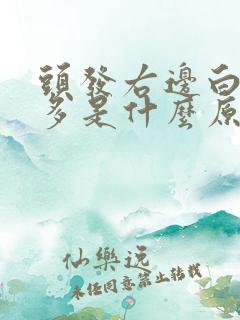 頭發右邊白
多是什麼原
仙樂説
未經同意禁止轉載